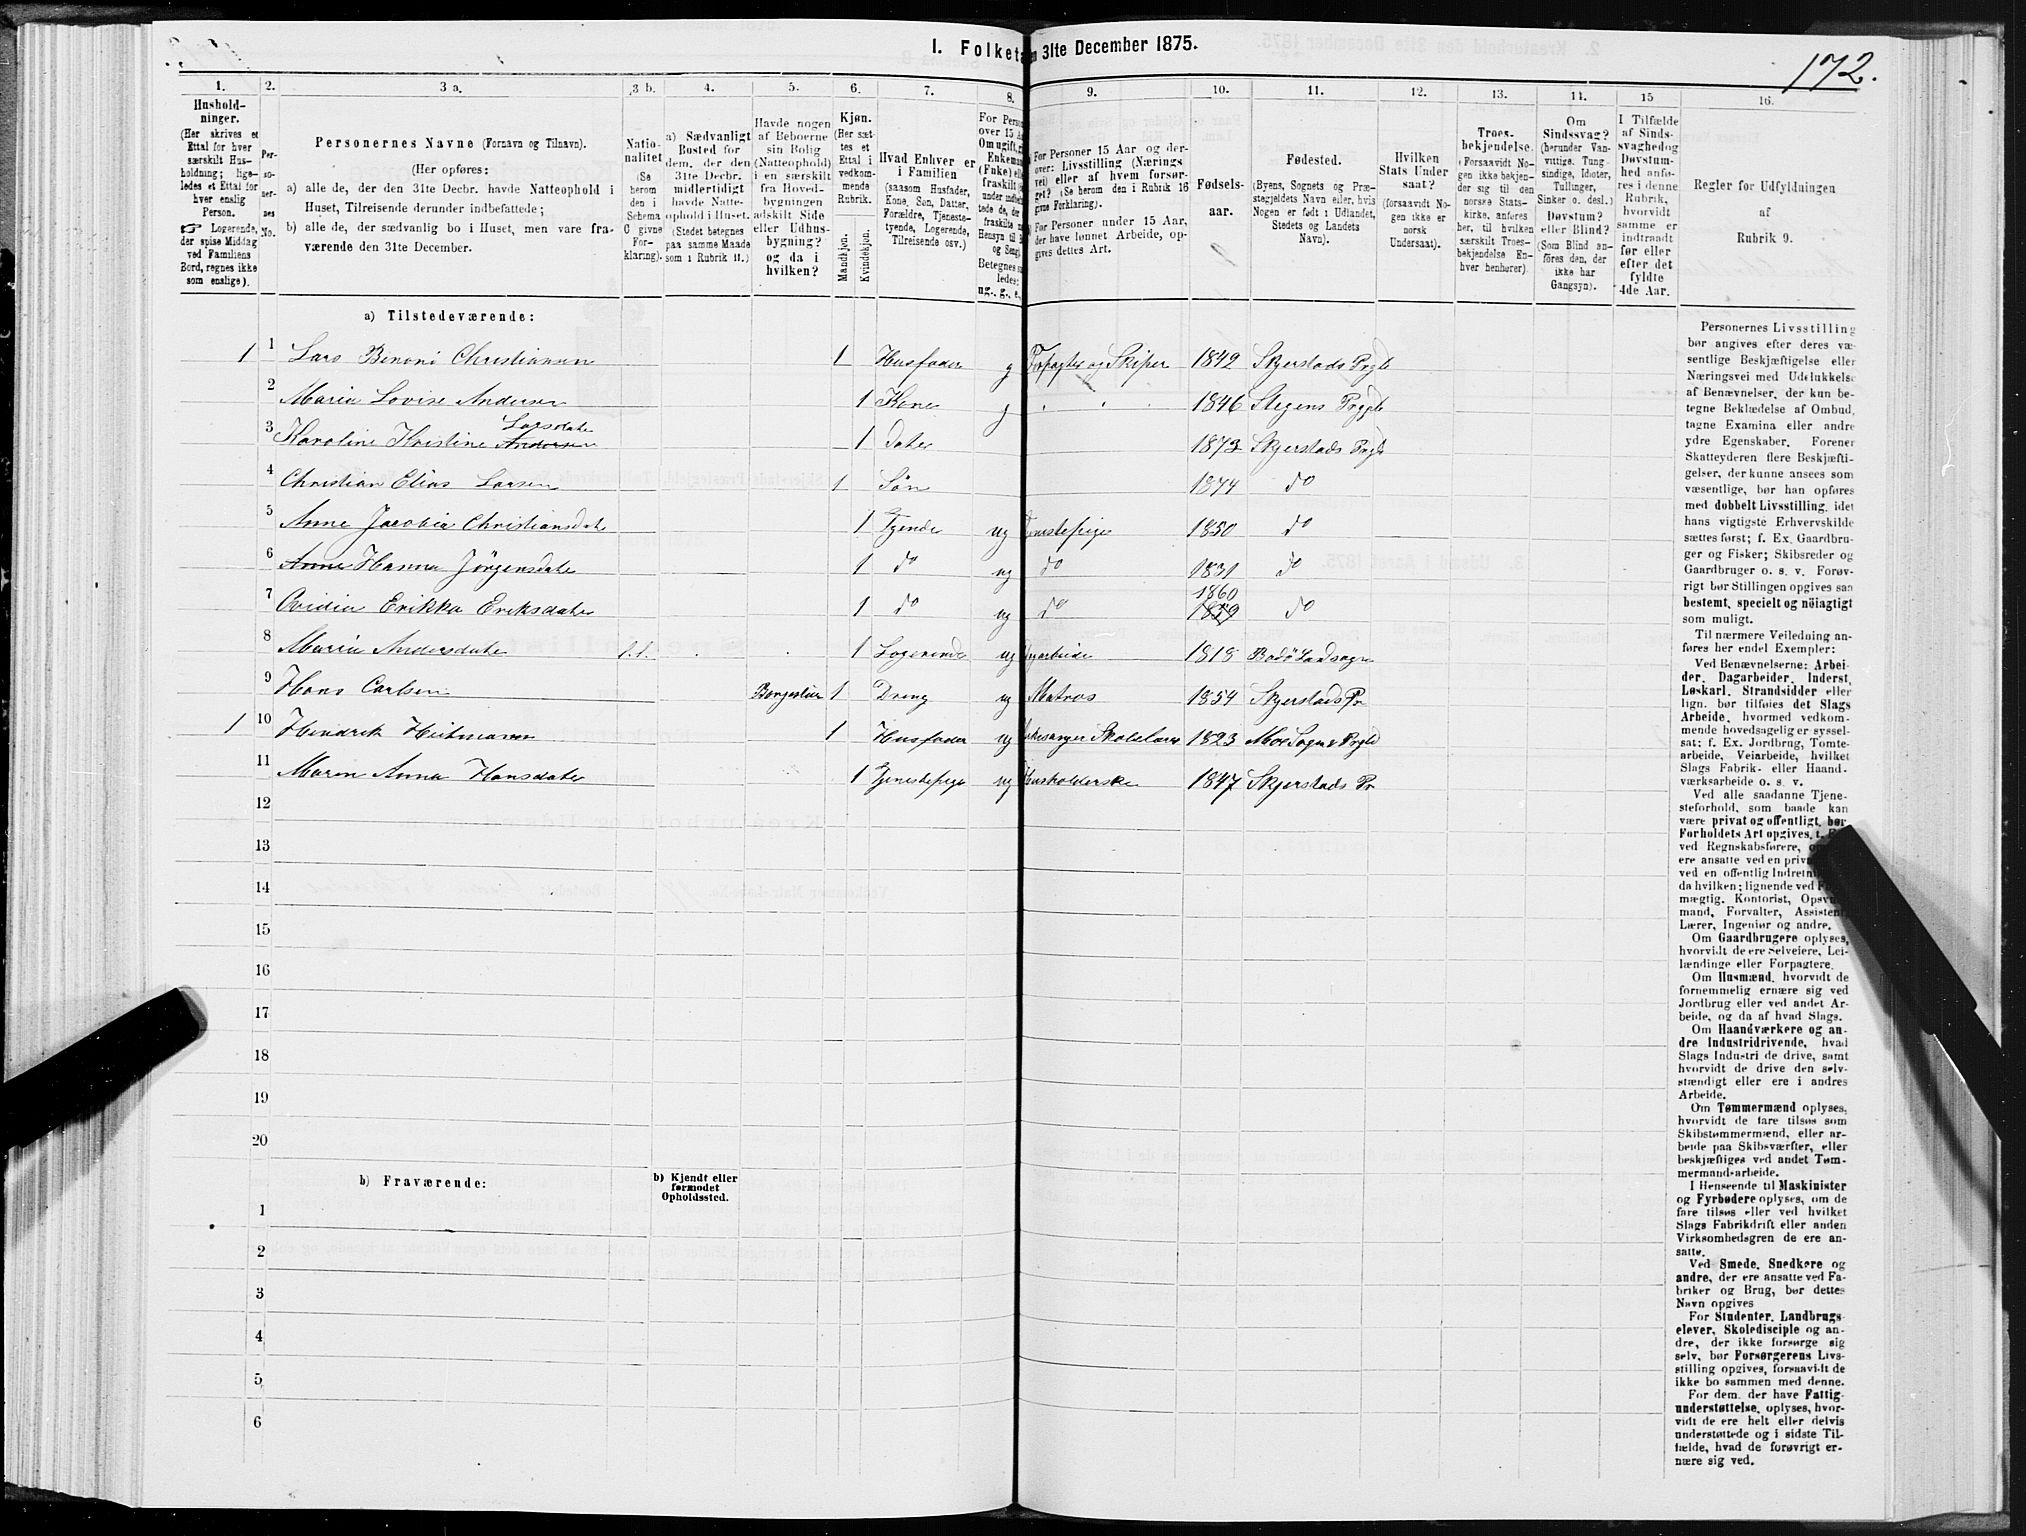 172.
I. Folketæ
n 31te December 1875.
1. 2. 3 a. 3 b. 4. 5. 6. 7. 8. 9. 10. 11. 12. 13. 14. 15 16.
Hushold-
ninger.
(Her skrives et
Ettal for hver
særskilt Hus-
holdning; lige-
ledes et Ettal for
hver enslig
Person.
☞ Logerende,
der spise Middag
ved Familiens
Bord, regnes ikke
som enslige).
Per-
so-
ner-
nes
No.
Personernes Navne (Fornavn og Tilnavn).
(Her opføres:
a) alle de, der den 31te Decbr. havde Natteophold i
Huset, Tilreisende derunder indbefattede;
b) alle de, der sædvanlig bo i Huset, men vare fra-
værende den 31te December.
Natio-
nalitet
(Se
herom
den i
Schema
C givne
For-
klaring).
a) Sædvanligt
Bosted for
dem, der den
31te Decbr.
midlertidigt
havde Natte-
ophold i Huset.
(Stedet betegnes
paa samme Maade
som i Rubrik 11.)
Havde nogen
af Beboerne
sin Bolig
(Natteophold)
i en særskilt
fra Hoved-
bygningen
adskilt Side
eller Udhus-
bygning?
og da i
hvilken?
Kjøn.
(Her sæt-
tes et
Ettal i
vedkom-
mende
Rubrik.
Mandkjøn.
Kvindekjøn.
Hvad Enhver er
i Familien
(saasom Husfader,
Kone, Søn, Datter,
Forældre, Tjeneste-
tyende, Logerende,
Tilreisende osv.)
For Person
over 15 Aa
Om ugift, g
Enkeman
(Fnke) elle
fraskilt
Betegnes s
ledes:
ug., g., e.,
For Personer 15 Aar og der-
over: Livsstilling (Nærings
vei) eller af hvem forsør-
get? (Se herom den i Rubrik 16
givne Forklaring).
For Personer under 15 Aar,
der have lønnet Arbeide, op-
gives dettes Art.
Fødsels-
aar.
Fødested.
(Byens, Sognets og Præ-
stegjeldets Navn eller, hvis
Nogen er født i Udlandet,
Stedets og Landets
Navn).
Hvilken
Stats Under
saat?
(forsaavidt No-
gen ikke er
norsk
Undersaat).
Troes-
bekjendelse.
(Forsaavidt No-
gen ikke bekjen-
der sig til den
norske Stats-
kirke, anføres
her, til hvilken
særskilt Troes-
bekjendelse En-
hver henhører).
Om
Sindssvag?
(herunder Van-
vittige, Tung-
sindige, Idioter,
Tullinger,
Sinker o. desl.)
Døvstum?
eller Blind?
(Som Blind an-
føres den, der
ikke har
Gangsyn).
I Tilfælde
af Sinds-
svaghed og
Døvstum-
hed anfø-
res i denne
Rubrik,
hvorvidt
samme er
indtraadt
før eller
efter det
fyldte
4de Aar.
Regler for Udfyldningen
af
Rubrik 9.
a) Tilstedeværende:
1 1 Lars Benoni Christiansen 1 Husfader g Forpagter og Skiper 1842 Skjerstads Prgld
2 Maria Lovise Andersen 1 Kone g 1846 Stegens Prgld
Larsdater
3 Karoline Kristine Andersen 1 dater 1873 Skjerstads Prgld
4 Christian Elias Larsen 1 Søn 1874 do
5 Anne Jacobia Christiansdater 1 Tyende ug Tjenestepige 1850 do
6 Anne Hanna Jörgensdater 1 do ug do 1831 do
1860
7 Ovidia Erikka Eriksdater 1 do ug do 1859 do
8 Maria Andersdater f.f. 1 Logerende ug 1818 Bodö Landsogn
9 Hans Carlsen Borgestuen 1 Dreng ug Matros 1854 Skjerstads Pr
1 10 Hendrik Heitmann 1 Husfader ug Kirkesanger Skolelærer 1823 Moe Sogns Prgld
11 Maren Anna Hansdater 1 Tjenestepige ug Husholderske 1847 Skjerstads Pr
12
13
14
15
16
17
18
19
20
b) Fraværende:
b) Kjendt eller
formodet
Opholdssted.
1
2
3
4
5
6
Personernes Livsstilling
bør angives efter deres væ-
sentlige Beskjæftigelse eller
Næringsvei med Udelukkelse
af Benævnelser, der kun be-
tegne Beklædelse af Ombud,
tagne Examina eller andre
ydre Egenskaber. Forener
Skatteyderen flere Beskjæfti-
gelser, der kunne ansees som
væsentlige, bør han opføres
med dobbelt Livsstilling, idet
hans vigtigste Erhvervskilde
sættes først; f. Ex. Gaardbru-
ger og Fisker; Skibsreder og
Gaardbruger o. s. v. Forøv-
rigt bør Stillingen opgives saa
bestemt, specielt og nöiagtigt
som muligt.
Til nærmere Veiledning an-
føres her endel Exempler:
Ved Benævnelserne: Arbei-
der, Dagarbeider, Inderst,
Løskarl, Strandsidder eller
lign. bør tilføies det Slags
Arbeide, hvormed vedkom-
mende hovedsagelig er syssel-
sat; f. Ex. Jordbrug, Tomte-
arbeide, Veiarbeide, hvilket
Slags Fabrik- eller Haand-
værksarbeide o. s. v.
Ved alle saadanne Tjene-
steforhold, som baade kan
være privat og offentligt, bør
Forholdets Art opgives,
ved Regnskabsførere,
ere ansatte ved en priva
ved en offentlig Indretn
da hvilken; lignende ved F
mægtig, Kontorist, Opsy
mand, Forvalter, Assistent,
Lærer, Ingeniør og andre.
Om Gaardbrugere oplyses,
hvorvidt de ere Selveiere, Lei-
lændinge eller Forpagtere.
Om Husmænd, hvorvidt de
fornemmelig ernære sig ved
Jordbrug eller ved andet Ar-
beide, og da af hvad Slags.
Om Haandværkere og an-
dre Industridrivende, hvad
Slags Industri de drive, samt
hvorvidt de drive den selv-
stændigt eller ere i andres
Arbeide.
Om Tømmermænd oplyses,
hvorvidt de fare tilsøs som
Skibstømmermænd, eller ar-
beide paa Skibsværfter, eller
beskjæftiges ved andet Tøm-
mermandarbeide.
I Henseende til Maskinister
og Fyrbødere oplyses, om de
fare tilsøs eller ved hvilket
Slags Fabrikdrift eller anden
Virksomhedsgren de ere an-
satte.
Ved Smede, Snedkere og
andre, der ere ansatte ved Fa-
briker og Brug, bør dettes
Navn opgives
For Studenter, Landbrugs-
elever, Skoledisciple og an-
dre, der ikke forsørge sig
selv, bør Forsørgerens Livs-
stilling opgives, forsaavidt de
ikke bo sammen med denne.
For dem, der have Fattig-
understøttelse, oplyses, hvor-
vidt de ere helt eller delvis
understøttede og i sidste Til-
fælde, hvad de forøvrigt er-
nære sig ved.